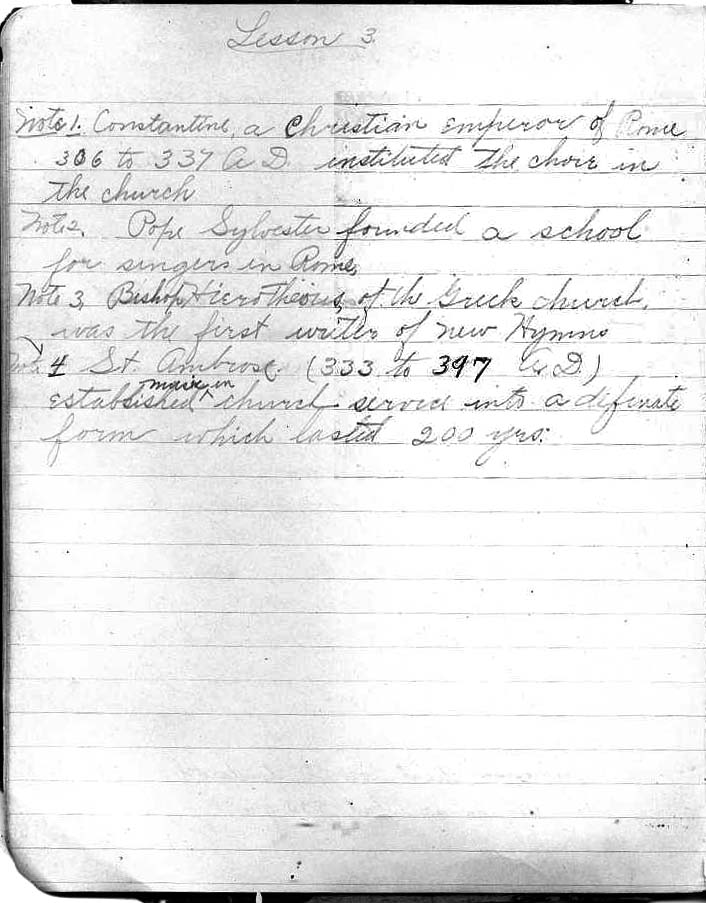 Lesson 3.
Note 1. Constantine, a Christian emperor of Rome
306 to 337 A D. instituted the choir in
the church
Note 2. Pope Sylvester founded a school
for singers in Rome,
Note 3, Bishop Hierotheous, of the Greek church,
was the first writer of new Hymns
Note 4 St. Ambrose (333 to 397 A.D.)
music in
established church service into a definate
form which lasted 200 yrs.